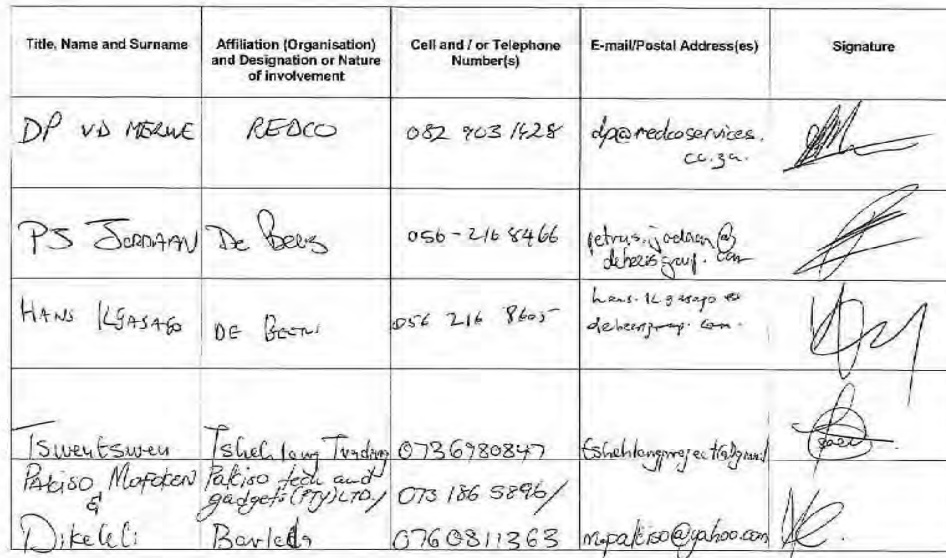 Title, Name and Surname
Affiliation (Organisation) and Designation or Nature of involvement
Cell and / or Telephone Number(s)
E-mail/Postal Address(es)
Signature
DP VD MERWE
REDCO
082 903 1428
dp@redcoservices.
co.za.
PS JORDAAN
De Beers
056-216 8466
petrus.jordaan@
debeersgroup.com
HANS KGASAGO
DE BEERS
056 216 8605
hans.kgasago@
debeersgroup.com.
Tswentswen
Tshehlang Trading
0736980847
PAKISO MOFOKEN
&
Dikeleli
Pakiso tech and
gadgets (PTY) LTD/
Barleda
073 186 5896/
0760811363
mopakiso@yahoo.com